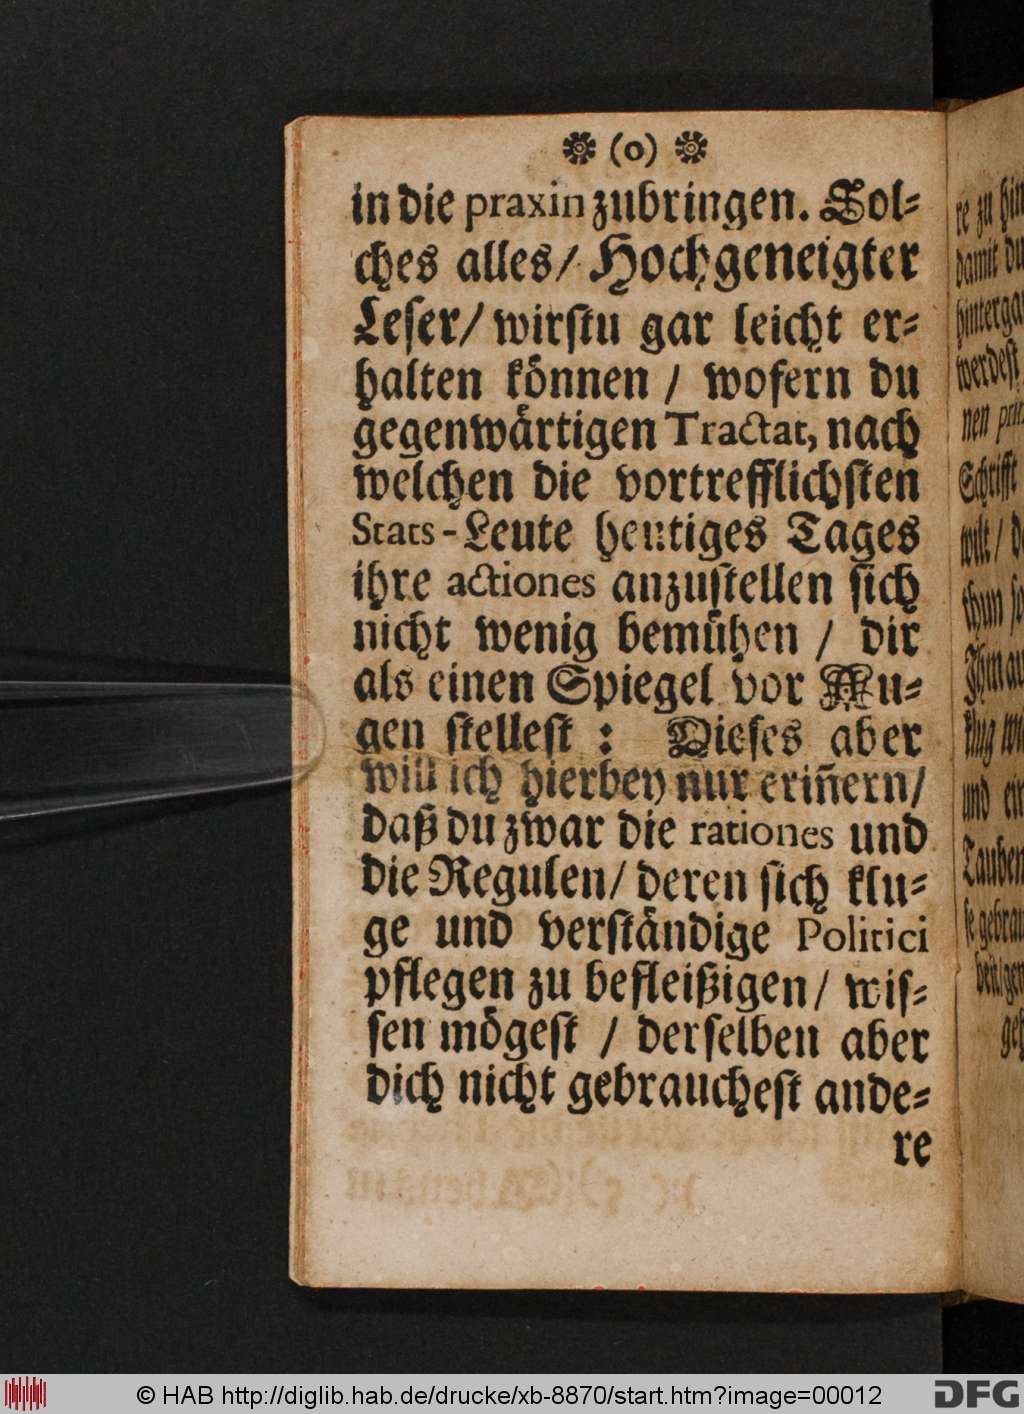 ❋ (o) ❋
in die praxin zubringen. Sol⸗
ches alles / Hochgeneigter
Leser / wirstu gar leicht er⸗
halten können / wofern du
gegenwärtigen Tractat, nach
welchen die vortrefflichsten
Stats-Leute heutiges Tages
ihre actiones anzustellen sich
nicht wenig bemühen / dir
als einen Spiegel vor Au⸗
gen stellest : Dieses aber
will ich hierbey nur eriñern /
daß du zwar die rationes und
die Regulen / deren sich klu⸗
ge und verständige Politici
pflegen zu befleißigen / wis⸗
sen mögest / derselben aber
dich nicht gebrauchest ande⸗
re
re zu
damit
werdest
nen
Schrifft
wilt /
thun
klug
und
Tauben
© HAB http://diglib.hab.de/drucke/xb-8870/start.htm?image=00012
DFG